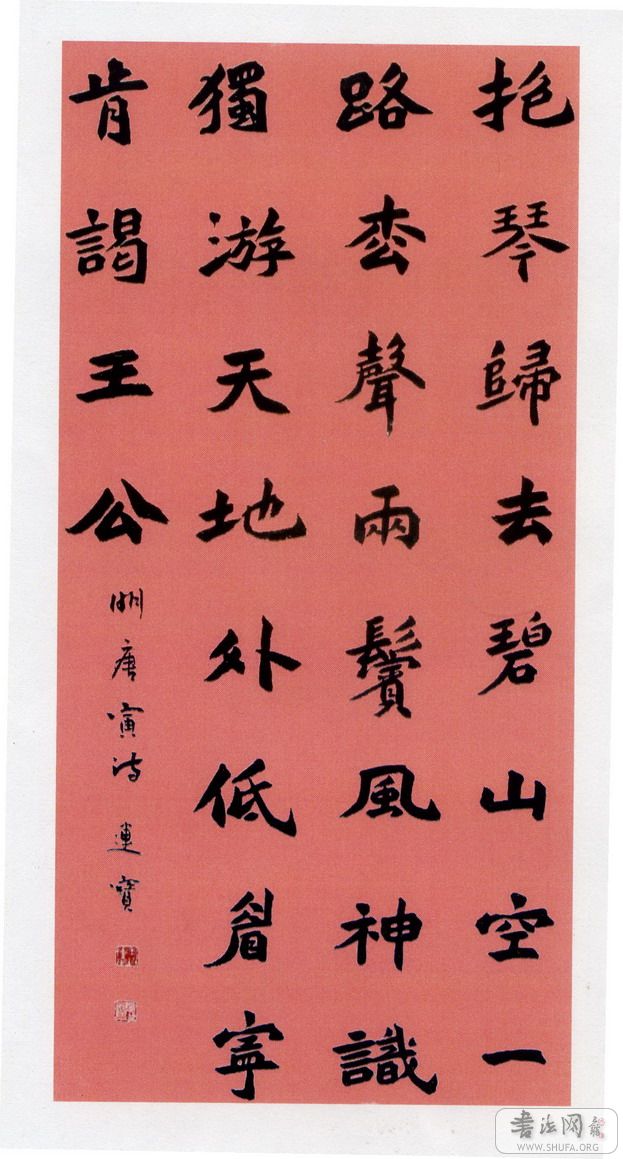 抱琴歸去碧山空一
路枩聲兩鬢風神識
獨游天地外低眉寧
肯謁王公
明唐寅詩 連寶
書法网
WWW.SHUFA.ORG